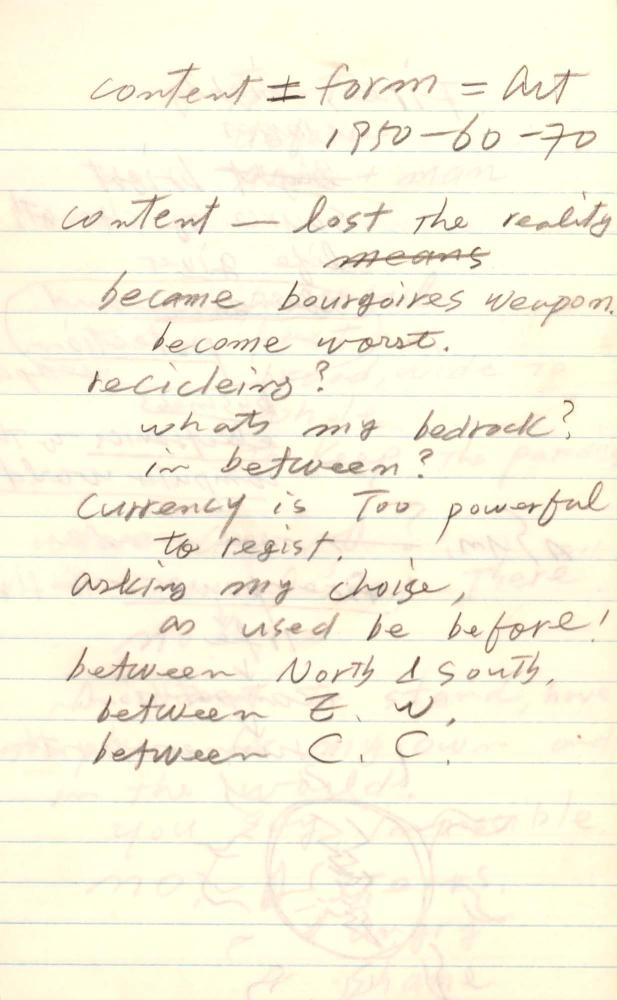 content ± form = Art
1950-60-70
content — lost the reality
means
became bourgoires weapon.
become worst.
recicleing?
whats my bedrock?
in between?
Currency is Too powerful
to regist.
asking my choise,
as used be before!
between North & South,
between E. W,
between C. C.